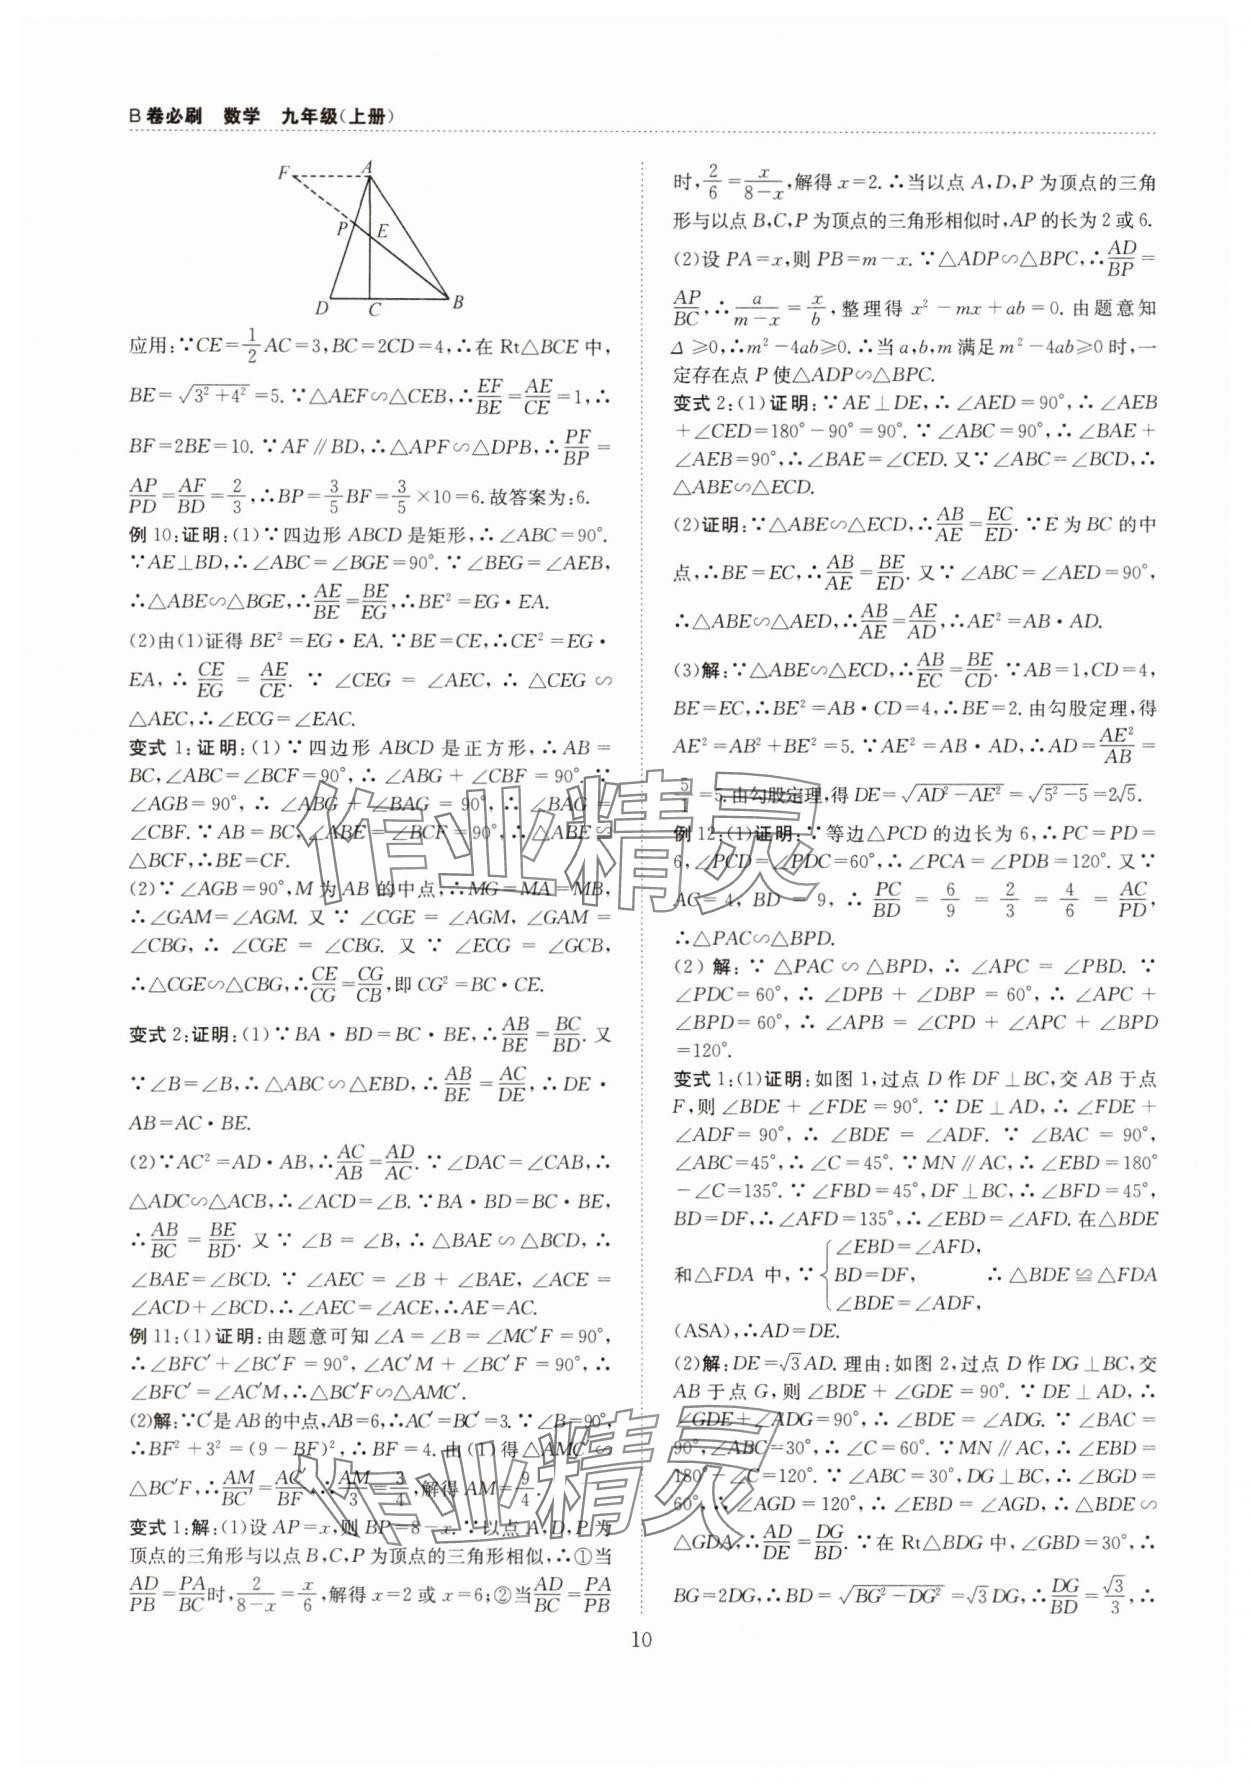 B 卷必刷 数学 九年级(上册)
F A
P E
D C B
应用:∵CE=1/2 AC=3,BC=2CD=4,∴在 Rt△BCE 中,
BE=√(3²+4²)=5.∵△AEF∽△CEB,∴EF/BE=AE/CE=1,∴
BF=2BE=10.∵AF∥BD,∴△APF∽△DPB,∴PF/BP=
AP/PD=AF/BD=2/3,∴BP=3/5 BF=3/5×10=6.故答案为:6.
例 10:证明:(1)∵四边形 ABCD 是矩形,∴∠ABC=90°.
∵AE⊥BD,∴∠ABC=∠BGE=90°.∵∠BEG=∠AEB,
∴△ABE∽△BGE,∴AE/BE=BE/EG,∴BE²=EG·EA.
(2)由(1)证得 BE²=EG·EA.∵BE=CE,∴CE²=EG·
EA,∴CE/EG=AE/CE.∵∠CEG=∠AEC,∴△CEG∽
△AEC,∴∠ECG=∠EAC.
变式 1:证明:(1)∵四边形 ABCD 是正方形,∴AB=
BC,∠ABC=∠BCF=90°,∴∠ABG+∠CBF=90°.∵
∠AGB=90°,∴∠ABG+∠BAG=90°,∴∠BAG=
∠CBF.∵AB=BC,∠ABE=∠BCF=90°,∴△ABE≌
△BCF,∴BE=CF.
(2)∵∠AGB=90°,M 为 AB 的中点,∴MG=MA=MB,
∴∠GAM=∠AGM.又∵∠CGE=∠AGM,∠GAM=
∠CBG,∴∠CGE=∠CBG.又∵∠ECG=∠GCB,
∴△CGE∽△CBG,∴CE/CG=CG/CB,即 CG²=BC·CE.
变式 2:证明:(1)∵BA·BD=BC·BE,∴AB/BE=BC/BD.又
∵∠B=∠B,∴△ABC∽△EBD,∴AB/BE=AC/DE,∴DE·
AB=AC·BE.
(2)∵AC²=AD·AB,∴AC/AB=AD/AC.∵∠DAC=∠CAB,∴
△ADC∽△ACB,∴∠ACD=∠B.∵BA·BD=BC·BE,
∴AB/BC=BE/BD.又∵∠B=∠B,∴△BAE∽△BCD,∴
∠BAE=∠BCD.∵∠AEC=∠B+∠BAE,∠ACE=
∠ACD+∠BCD,∴∠AEC=∠ACE,∴AE=AC.
例 11:(1)证明:由题意可知∠A=∠B=∠MC′F=90°,
∴∠BFC′+∠BC′F=90°,∠AC′M+∠BC′F=90°,∴
∠BFC′=∠AC′M,∴△BC′F∽△AMC′.
(2)解:∵C′是 AB 的中点,AB=6,∴AC′=BC′=3.∵∠B=90°,
∴BF²+3²=(9-BF)²,∴BF=4.由(1)得△AMC′∽
△BC′F,∴AM/BC′=AC′/BF,∴AM/3=3/4,解得 AM=9/4.
变式 1:解:(1)设 AP=x,则 BP=8-x.∵以点 A,D,P 为
顶点的三角形与以点 B,C,P 为顶点的三角形相似,∴①当
AD/PB=PA/BC时,2/(8-x)=x/6,解得 x=2 或 x=6;②当AD/BC=PA/PB
时,2/6=x/(8-x),解得 x=2.∴当以点 A,D,P 为顶点的三角
形与以点 B,C,P 为顶点的三角形相似时,AP 的长为 2 或 6.
(2)设 PA=x,则 PB=m-x.∵△ADP∽△BPC,∴AD/BP=
AP/BC,∴a/(m-x)=x/b,整理得 x²-mx+ab=0.由题意知
Δ≥0,∴m²-4ab≥0.∴当 a,b,m 满足 m²-4ab≥0 时,一
定存在点 P 使△ADP∽△BPC.
变式 2:(1)证明:∵AE⊥DE,∴∠AED=90°,∴∠AEB
+∠CED=180°-90°=90°.∵∠ABC=90°,∴∠BAE+
∠AEB=90°,∴∠BAE=∠CED.又∵∠ABC=∠BCD,∴
△ABE∽△ECD.
(2)证明:∵△ABE∽△ECD,∴AB/AE=EC/ED.∵E 为 BC 的中
点,∴BE=EC,∴AB/AE=BE/ED.又∵∠ABC=∠AED=90°,
∴△ABE∽△AED,∴AB/AE=AE/AD,∴AE²=AB·AD.
(3)解:∵△ABE∽△ECD,∴AB/EC=BE/CD.∵AB=1,CD=4,
BE=EC,∴BE²=AB·CD=4,∴BE=2.由勾股定理,得
AE²=AB²+BE²=5.∵AE²=AB·AD,∴AD=AE²/AB=
5/1=5.由勾股定理,得 DE=√(AD²-AE²)=√(5²-5)=2√5.
例 12:(1)证明:∵等边△PCD 的边长为 6,∴PC=PD=
6,∠PCD=∠PDC=60°,∴∠PCA=∠PDB=120°.又∵
AC=4,BD=9,∴PC/BD=6/9=2/3=4/6=AC/PD,
∴△PAC∽△BPD.
(2)解:∵△PAC∽△BPD,∴∠APC=∠PBD.∵
∠PDC=60°,∴∠DPB+∠DBP=60°,∴∠APC+
∠BPD=60°,∴∠APB=∠CPD+∠APC+∠BPD
=120°.
变式 1:(1)证明:如图 1,过点 D 作 DF⊥BC,交 AB 于点
F,则∠BDE+∠FDE=90°.∵DE⊥AD,∴∠FDE+
∠ADF=90°,∴∠BDE=∠ADF.∵∠BAC=90°,
∠ABC=45°,∴∠C=45°.∵MN∥AC,∴∠EBD=180°
-∠C=135°.∵∠FBD=45°,DF⊥BC,∴∠BFD=45°,
BD=DF,∴∠AFD=135°,∴∠EBD=∠AFD.在△BDE
∠EBD=∠AFD,
和△FDA 中,∵{BD=DF, ∴△BDE≌△FDA
∠BDE=∠ADF,
(ASA),∴AD=DE.
(2)解:DE=√3AD.理由:如图 2,过点 D 作 DG⊥BC,交
AB 于点 G,则∠BDE+∠GDE=90°.∵DE⊥AD,∴
∠GDE+∠ADG=90°,∴∠BDE=∠ADG.∵∠BAC=
90°,∠ABC=30°,∴∠C=60°.∵MN∥AC,∴∠EBD=
180°-∠C=120°.∵∠ABC=30°,DG⊥BC,∴∠BGD=
60°,∴∠AGD=120°,∴∠EBD=∠AGD,∴△BDE∽
△GDA,∴AD/DE=DG/BD.∵在 Rt△BDG 中,∠GBD=30°,∴
BG=2DG,∴BD=√(BG²-DG²)=√3DG,∴DG/BD=√3/3,∴
10
作业精灵
作业精灵